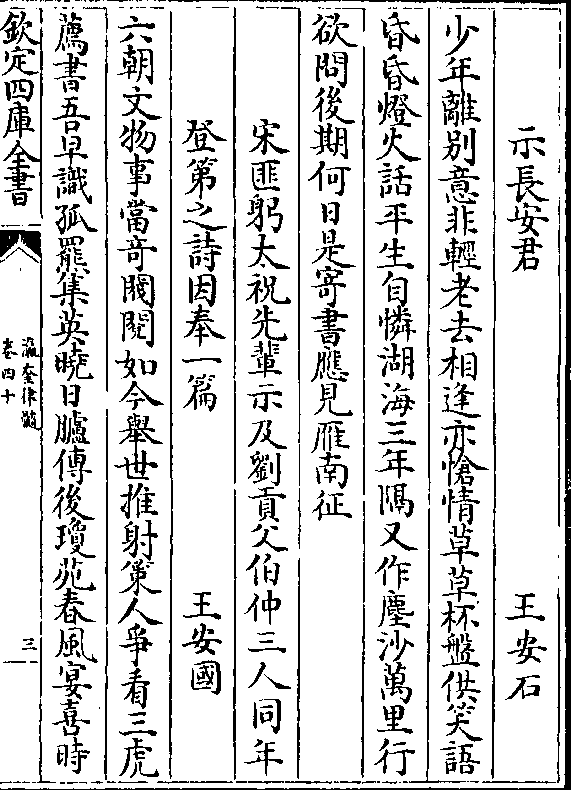 示長安君 王安石
少年離别意非輕老去相逢亦愴情草草杯盤供笑語
昏昏燈火話平生自憐湖海三年隔又作塵沙萬里行
欲問後期何日是寄書應見雁南征
宋匪躬太祝先輩示及劉貢父伯仲三人同年
登第之詩因奉一篇 王安國
六朝文物事當奇閥閲如今舉世推射策人爭看三虎
薦書吾早識孤羆集英曉日臚傳後瓊苑春風宴喜時
欽定四庫全書
瀛奎律髓
卷四十
三